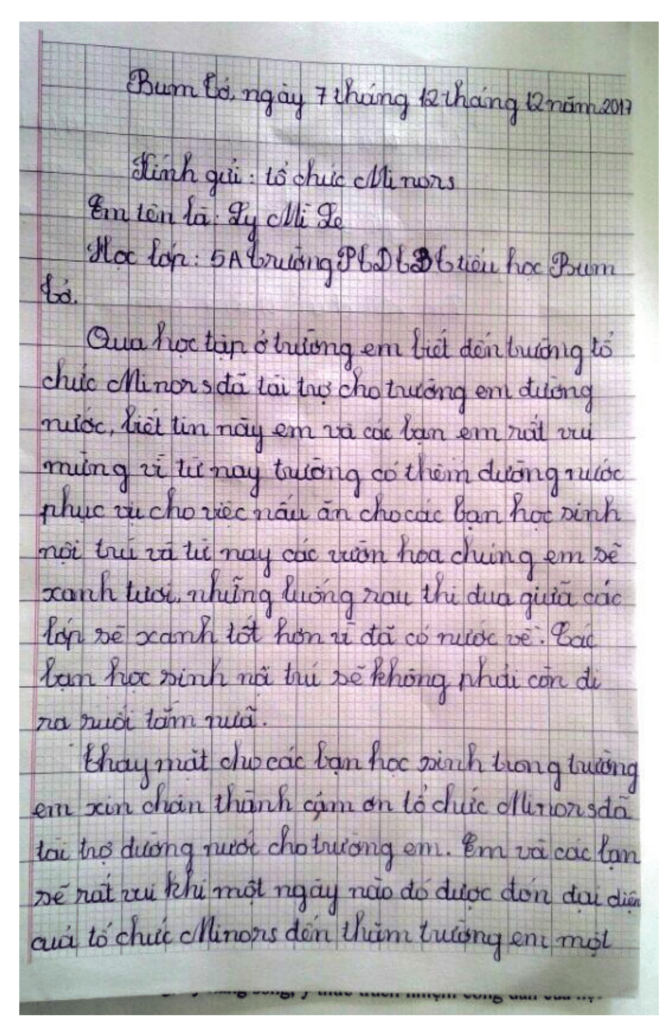 Bum Tở, ngày 7 tháng 12 tháng 12 năm 2017
Kính gửi: tổ chức Minors
Em tên là: Ly Mì Xe
Học lớp: 5A trường PTDTBT tiểu học Bum
Tở.
Qua học tập ở trường em biết đến trường tổ
chức Minors đã tài trợ cho trường em đường
nước, biết tin này em và các bạn em rất vui
mừng vì từ nay trường có thêm đường nước
phục vụ cho việc nấu ăn cho các bạn học sinh
nội trú và từ nay các vườn hoa chúng em sẽ
xanh tươi, những luống rau thi đua giữa các
lớp sẽ xanh tốt hơn vì đã có nước về. Các
bạn học sinh nội trú sẽ không phải còn đi
ra suối tắm rửa.
Thay mặt cho các bạn học sinh trong trường
em xin chân thành cảm ơn tổ chức Minors đã
tài trợ đường nước cho trường em. Em và các bạn
sẽ rất vui khi một ngày nào đó được đón đại diện
quá tổ chức Minors đến thăm trường em một